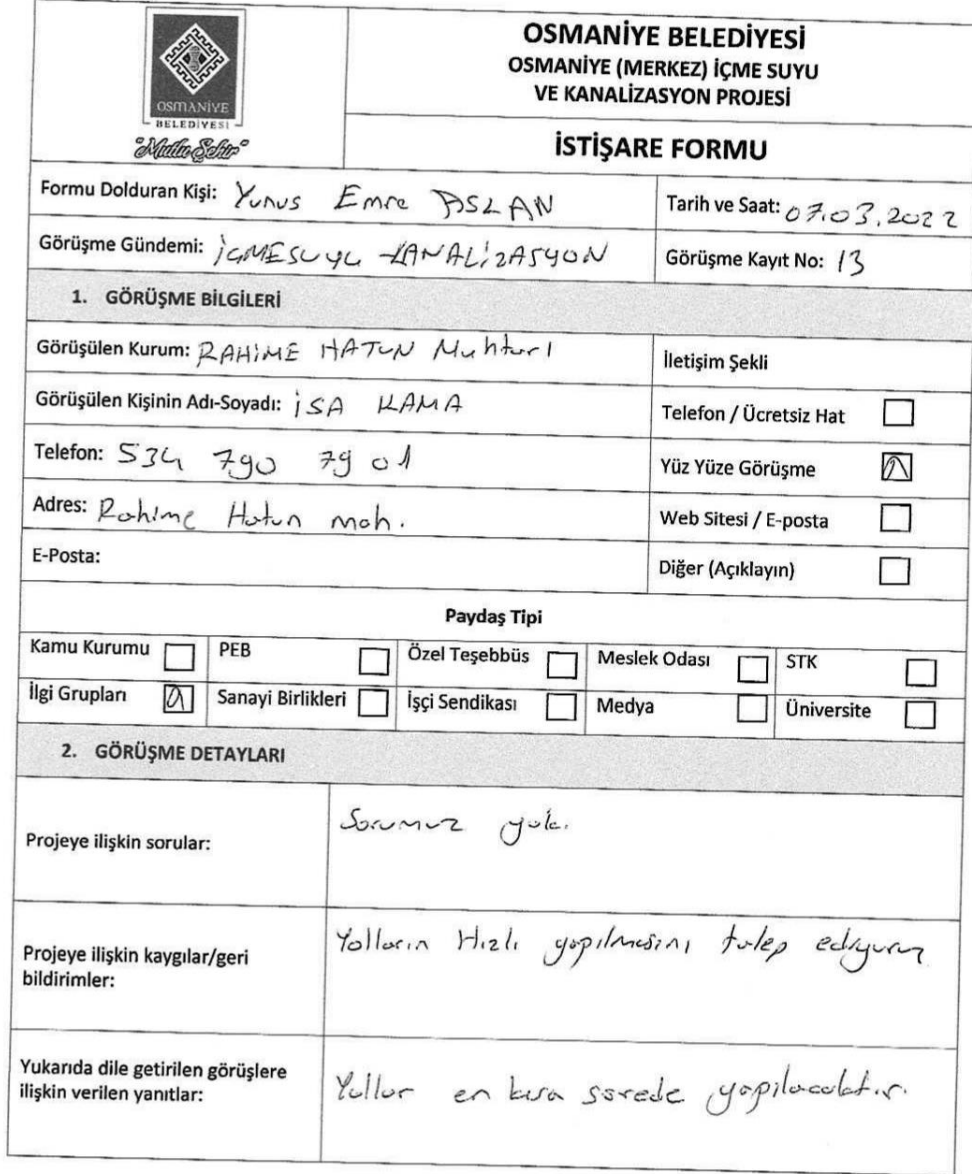 OSMANİYE
BELEDİYESİ
"Mutlu Şehir"
OSMANİYE BELEDİYESİ
OSMANİYE (MERKEZ) İÇME SUYU
VE KANALİZASYON PROJESİ
İSTİŞARE FORMU
Formu Dolduran Kişi: Yunus Emre ASLAN
Tarih ve Saat: 07.03.2022
Görüşme Gündemi: İÇMESUYU KANALİZASYON
Görüşme Kayıt No: 13
1. GÖRÜŞME BİLGİLERİ
Görüşülen Kurum: RAHİME HATUN Muhtarı
İletişim Şekli
Görüşülen Kişinin Adı-Soyadı: İSA KAMA
Telefon / Ücretsiz Hat
Telefon: 534 790 79 01
Yüz Yüze Görüşme
Adres: Rahime Hatun mah.
Web Sitesi / E-posta
E-Posta:
Diğer (Açıklayın)
Paydaş Tipi
Kamu Kurumu PEB Özel Teşebbüs Meslek Odası STK
İlgi Grupları Sanayi Birlikleri İşçi Sendikası Medya Üniversite
2. GÖRÜŞME DETAYLARI
Projeye ilişkin sorular:
Sorumuz yok.
Projeye ilişkin kaygılar/geri
bildirimler:
Yolların Hızlı yapılmasını talep ediyoruz
Yukarıda dile getirilen görüşlere
ilişkin verilen yanıtlar:
Yollar en kısa sürede yapılacaktır.